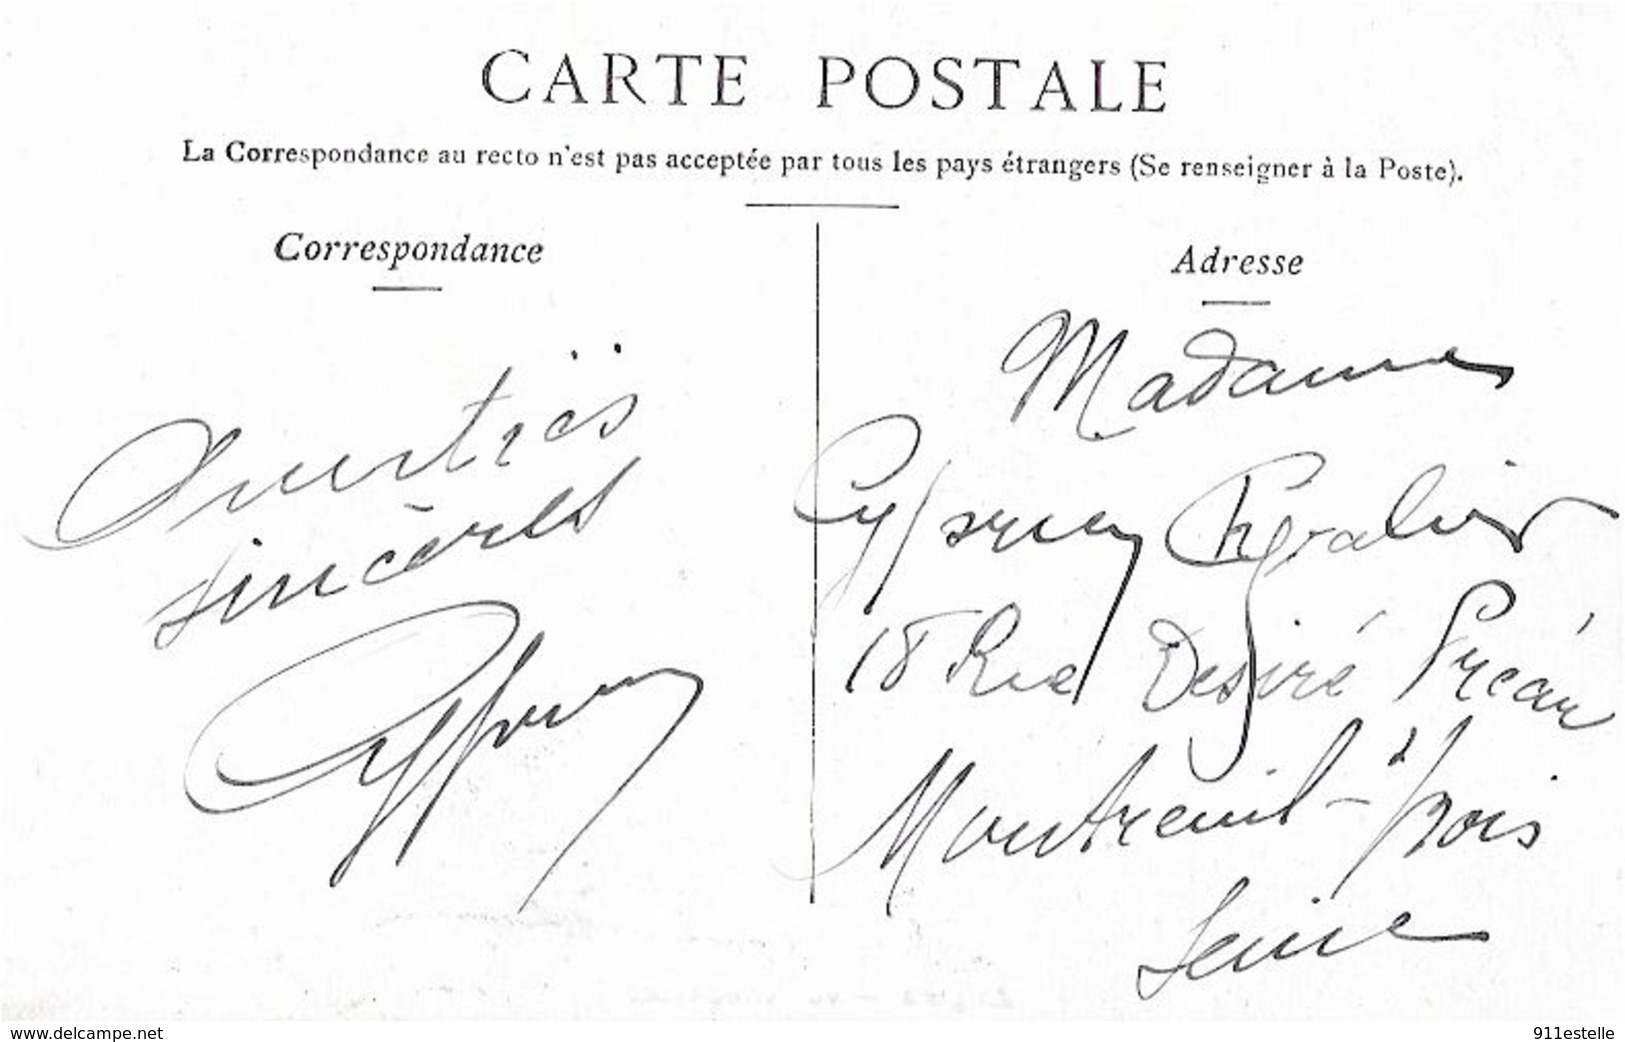 CARTE POSTALE
La Correspondance au recto n'est pas acceptée par tous les pays étrangers (Se renseigner à la Poste).
Correspondance
Adresse
Amitiés
sincères
Cyprien
Madame
Cyprien Chevalier
18 Rue Desiré Préau
Montreuil-s/Bois
Seine
www.delcampe.net
911estelle